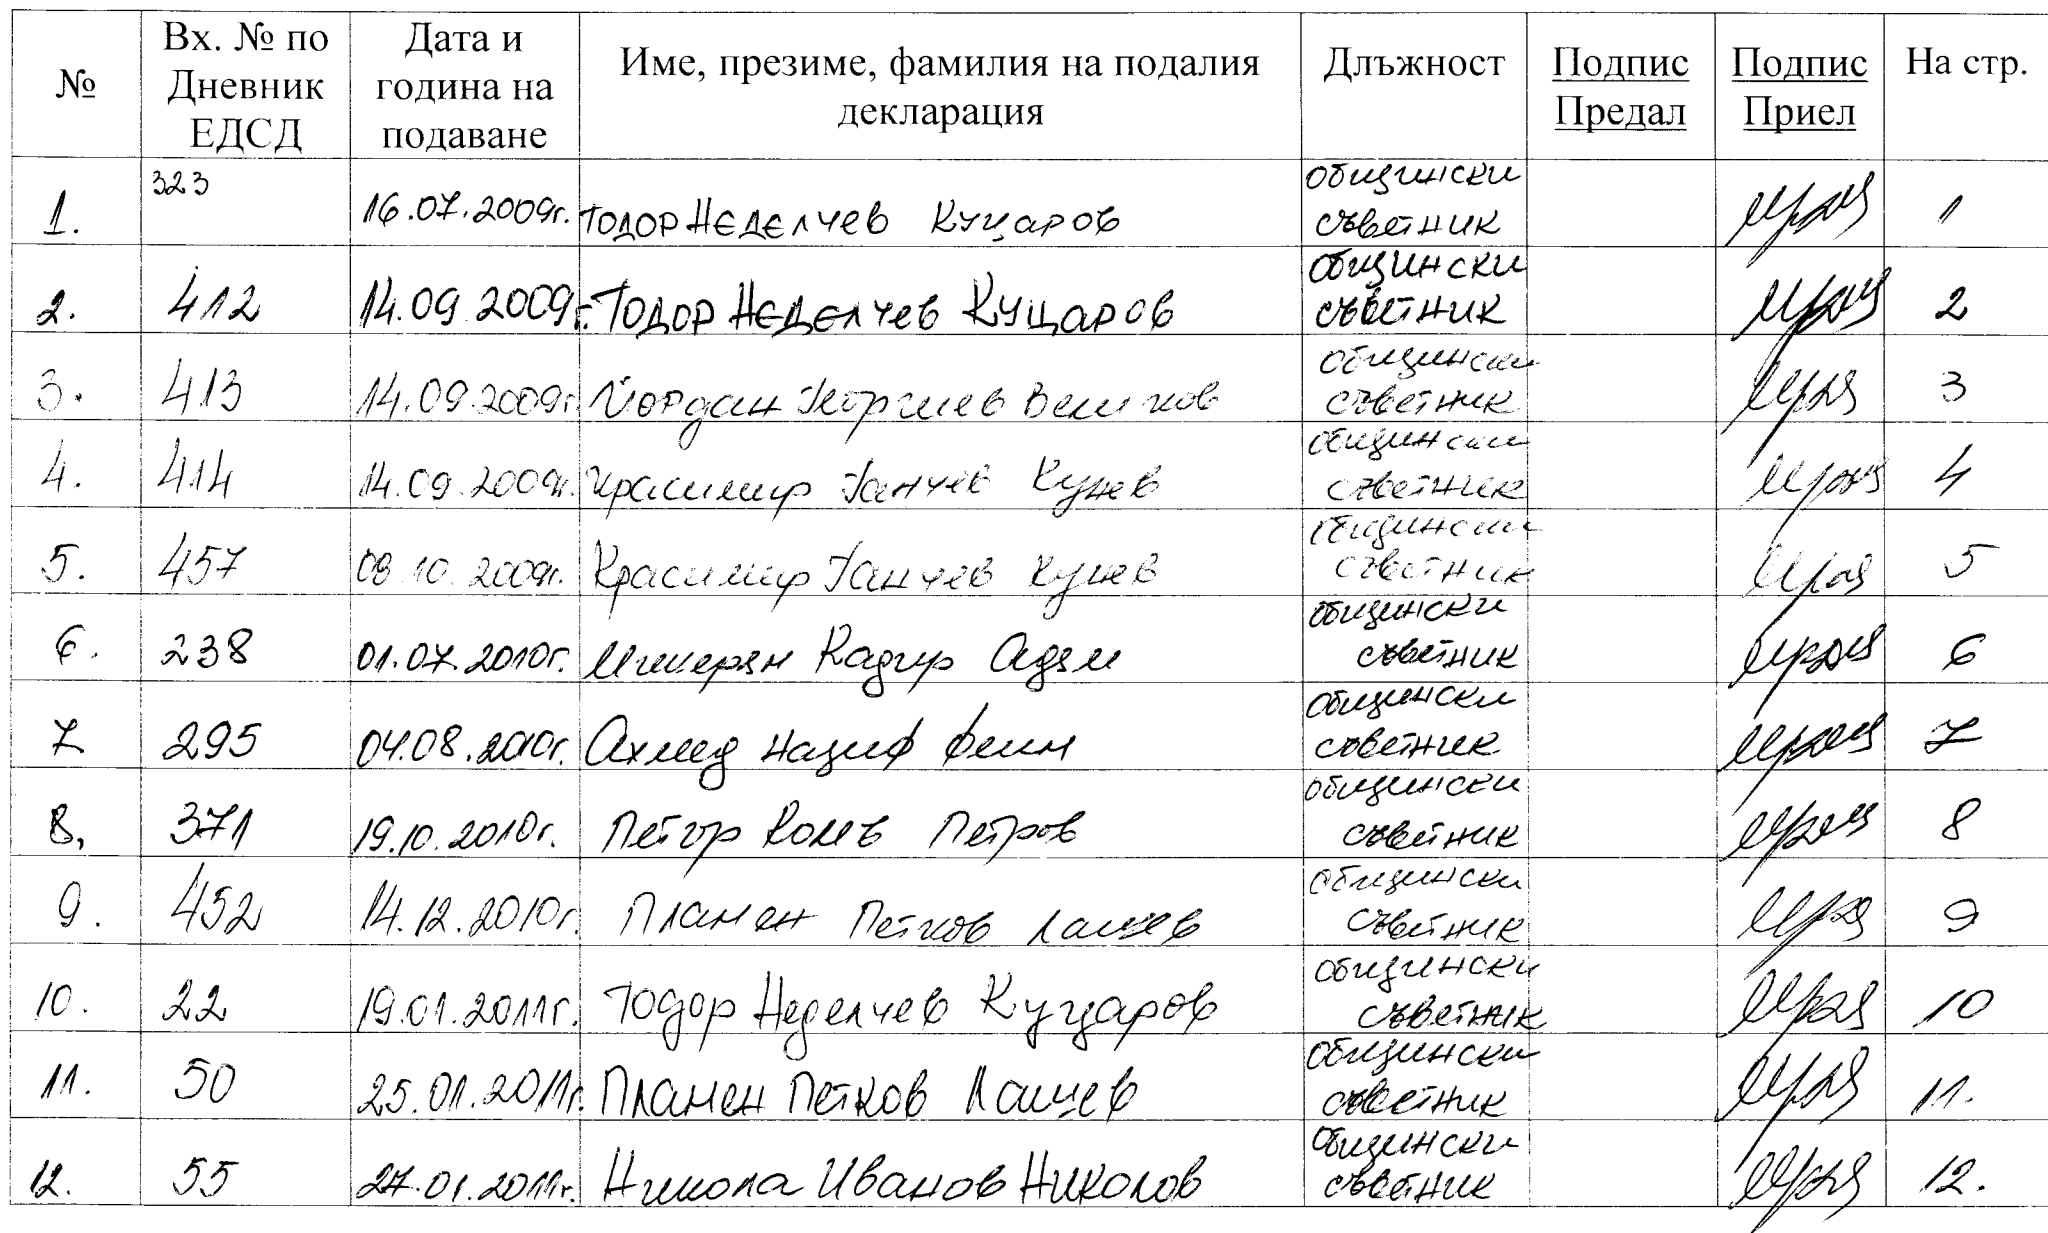 № Вх. № по Дневник ЕДСД Дата и година на подаване Име, презиме, фамилия на подалия декларация Длъжност Подпис Предал Подпис Приел На стр.
1. 323 16.07.2009г. Тодор Неделчев Куцаров общински съветник 1
2. 412 14.09.2009г. Тодор Неделчев Куцаров общински съветник 2
3. 413 14.09.2009г. Йордан Георгиев Великов общински съветник 3
4. 414 14.09.2009г. Красимир Ганчев Кунев общински съветник 4
5. 457 08.10.2009г. Красимир Ганчев Кунев общински съветник 5
6. 238 01.07.2010г. Кадир Адем общински съветник 6
7 295 04.08.2010г. Ахмед Назиф общински съветник 7
8. 371 19.10.2010г. Петър Колев Петров общински съветник 8
9. 452 14.12.2010г. Пламен Петков Лашев общински съветник 9
10. 22 19.01.2011г. Тодор Неделчев Куцаров общински съветник 10
11. 50 25.01.2011г. Пламен Петков Лашев общински съветник 11.
12. 55 27.01.2011г. Никола Иванов Николов общински съветник 12.